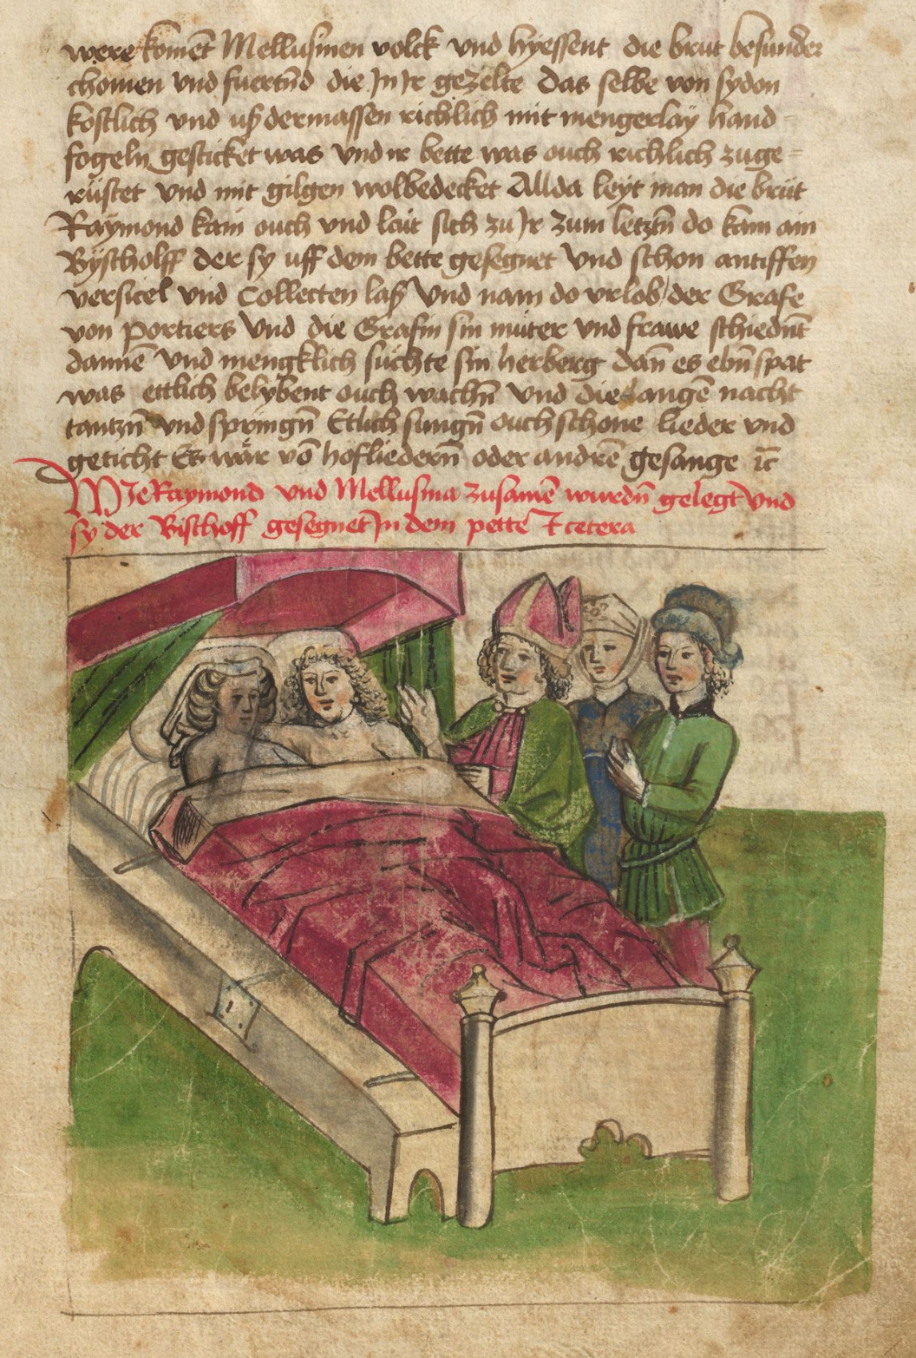 were koment Mellusinen volck vnd hyessent die brut besunder
chomen vnd fuertnd die Jn Jr gezelte Das selbe von sydon
kostlich vnd uß dermassen richlich mit mengerlay hand-
fogeln gesticket was Vnd ir bette was ouch richlich zuge=
rüstet vnd mit gilgen wolbedecket Allda leyt man die brut
Raymond kam ouch vnd lait sich zu Jr Zum letzn̄ do kam ain
Byscholff der sy uff dem bette gesegnet Vnd schon antiffen
versicel vnd Collecten laß Vnd nam do vrlob der Grafe
von portiers Vnd die Grafin sin muter vnd frawe schiednt
dannē Vnd mengklich suchte sin herberg dan̄ es ebn̄ spat
was ettlich belybent ouch wachn̄ Vnd die langē nacht
tantzn̄ vnd springn̄ Etlich sungn̄ ouch schone lieder vnd
geticht Es wär vō hofliedern̄ oder andrē gesange ꝛc̄
WJe Raymond vnd Mellusina zusamē wurdn̄ gelegt vnd
sy der Bischoff gesegnet Jn dem pette Et cetera